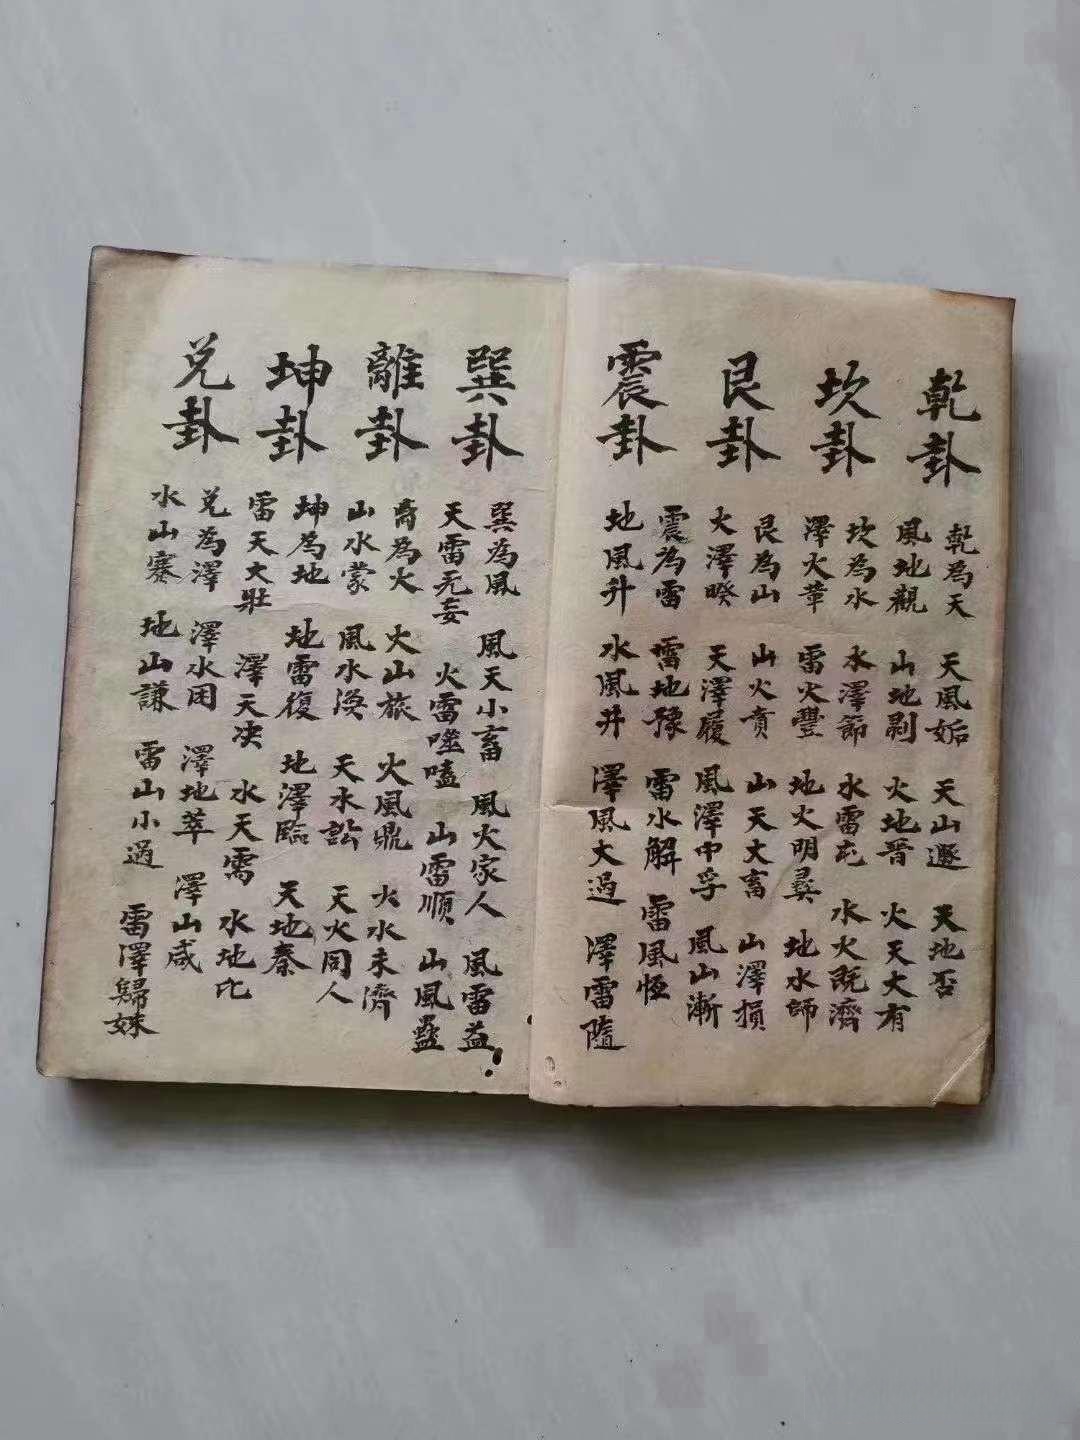 乾卦
乾為天 天風姤 天山遯 天地否
風地觀 山地剥 火地晋 火天大有
坎卦
坎為水 水澤節 水雷屯 水火既濟
澤火革 雷火豐 地火明彞 地水師
艮卦
艮為山 山火賁 山天大畜 山澤損
火澤睽 天澤履 風澤中孚 風山漸
震卦
震為雷 雷地豫 雷水解 雷風恆
地風升 水風井 澤風大過 澤雷隨
巽卦
巽為風 風天小畜 風火家人 風雷益
天雷无妄 火雷噬嗑 山雷順 山風蠱
離卦
离為火 火山旅 火風鼎 火水未濟
山水蒙 風水渙 天水訟 天火同人
坤卦
坤為地 地雷復 地澤臨 天地泰
雷天大壯 澤天决 水天需 水地比
兑卦
兑為澤 澤水困 澤地萃 澤山咸
水山蹇 地山謙 雷山小過 雷澤歸妹